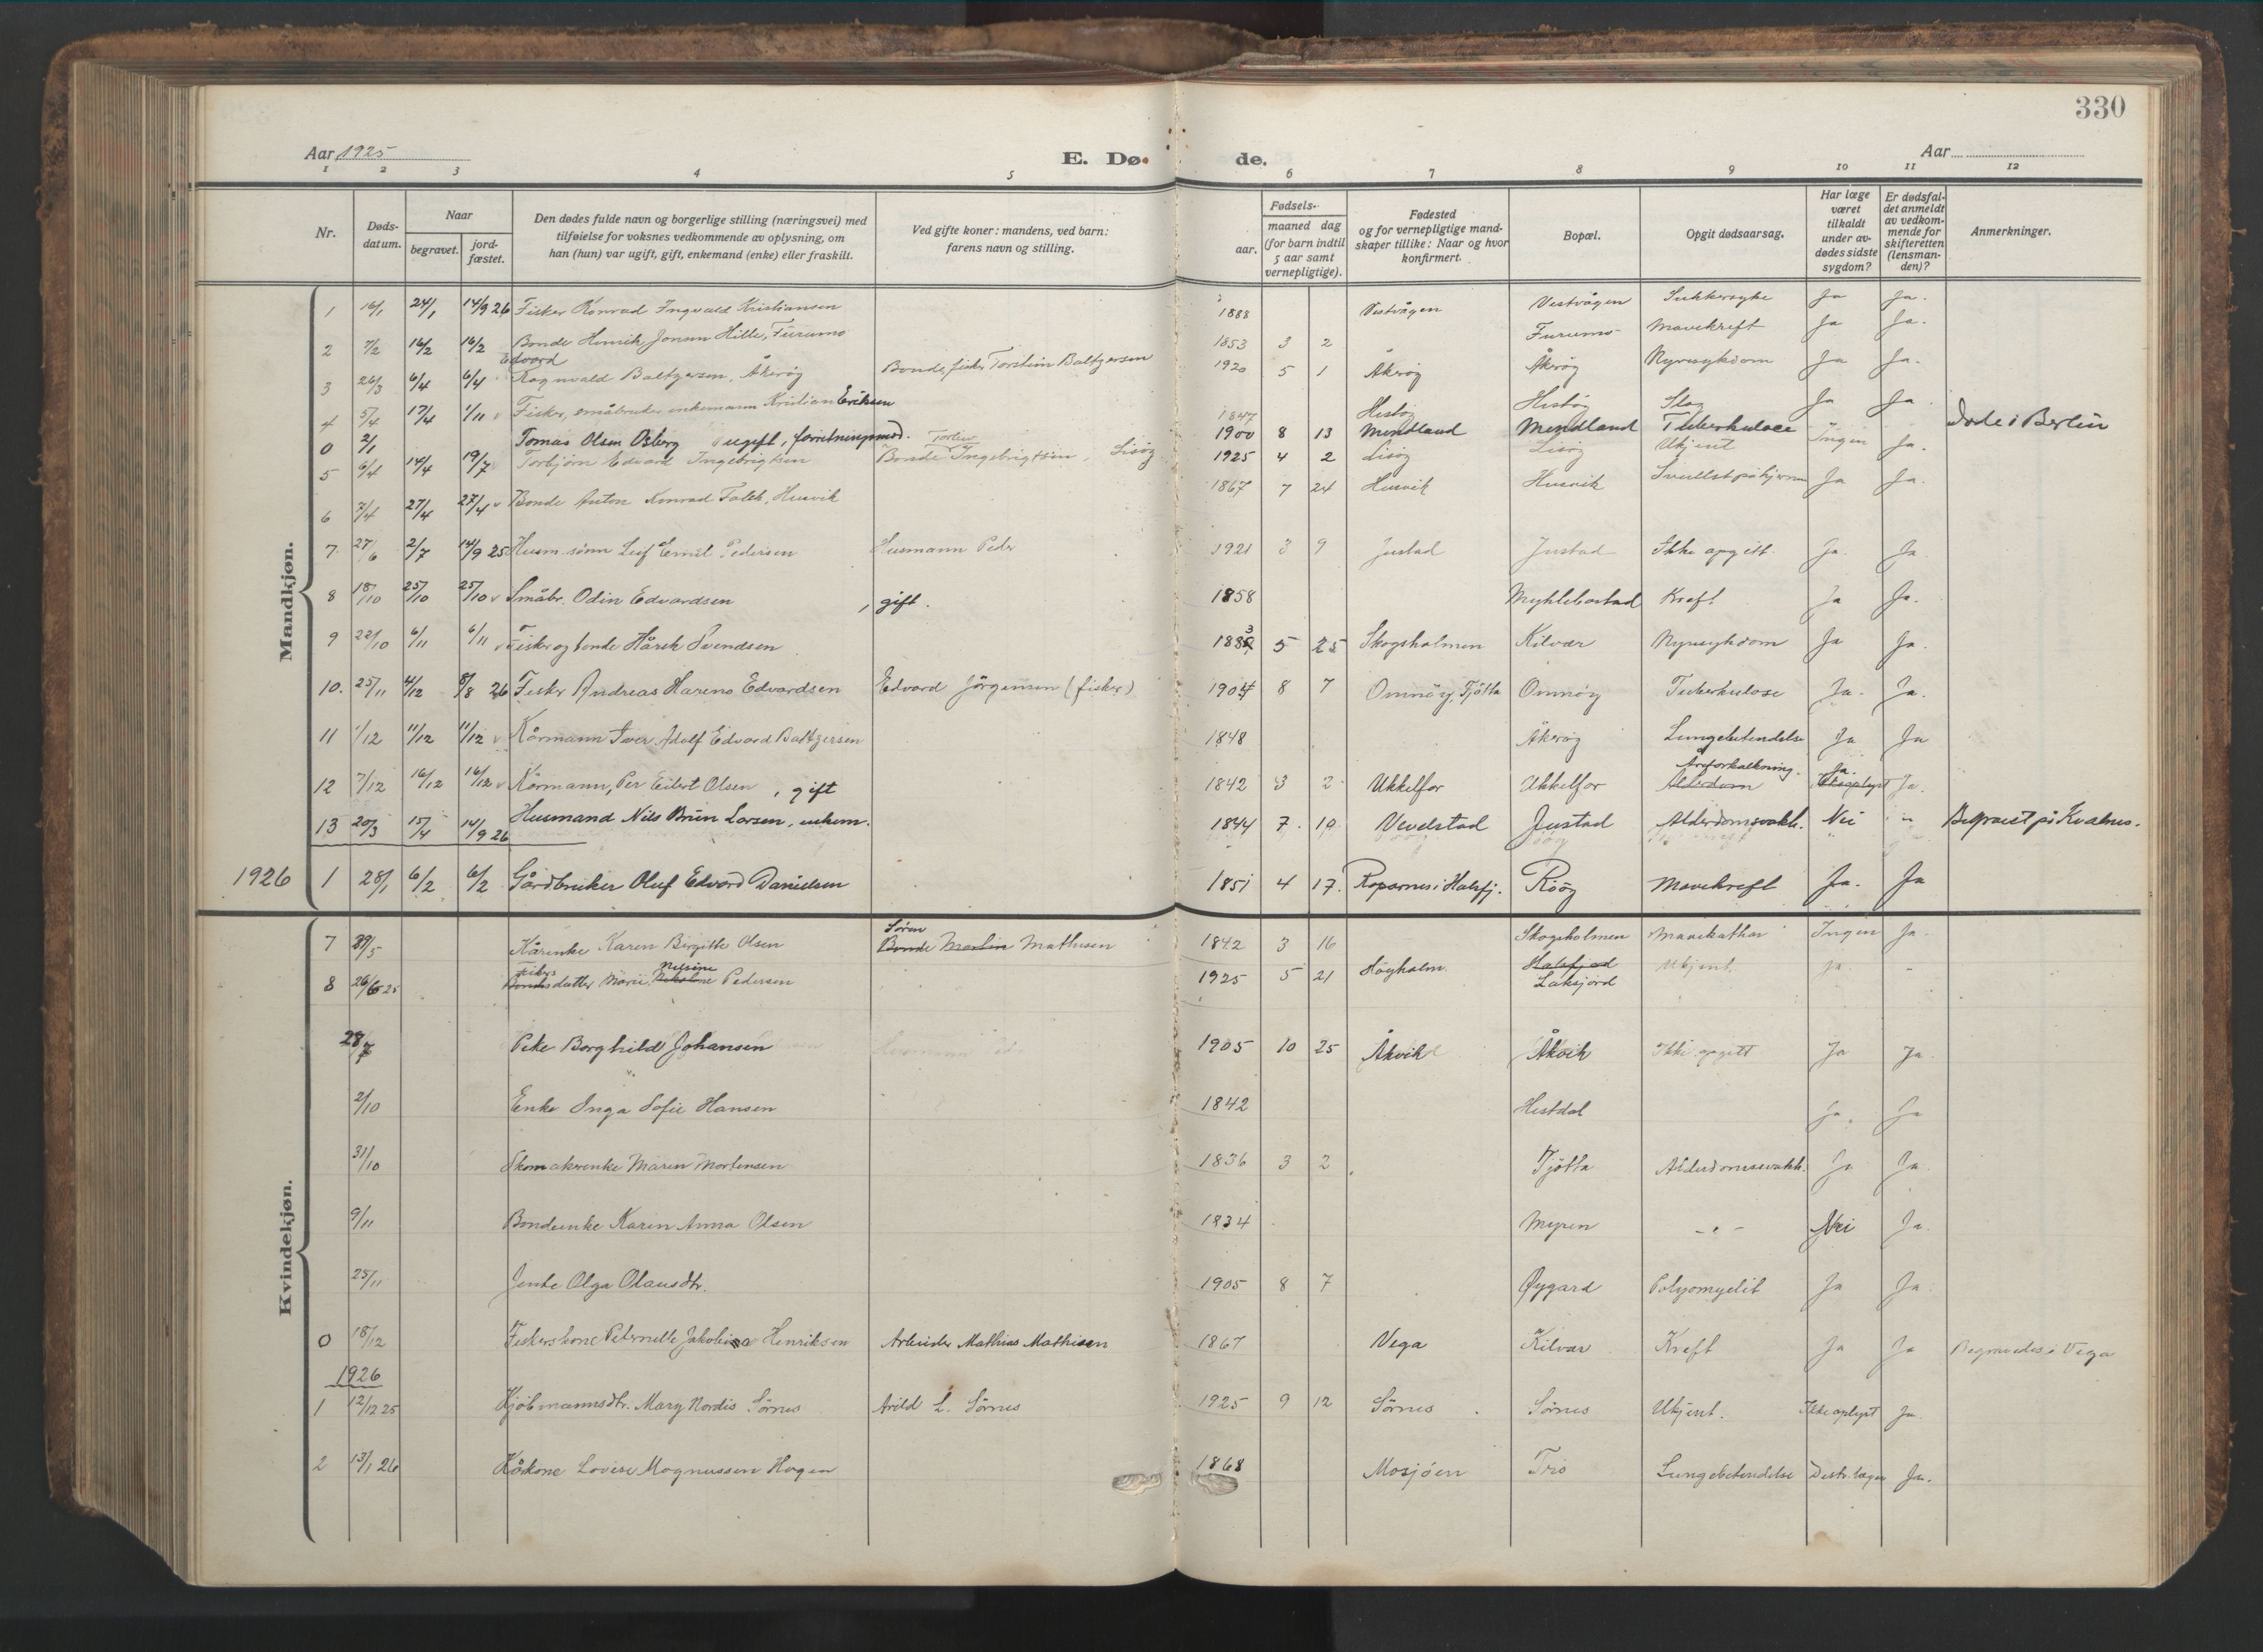 330
Aar 1925
E. Dø- de.
Aar
1 2 3 4 5 6 7 8 9 10 11 12
Nr.
Døds-datum.
Naar
begravet.
jord-fæstet.
Den dødes fulde navn og borgerlige stilling (næringsvei) med
tilføielse for voksnes vedkommende av oplysning, om
han (hun) var ugift, gift, enkemand (enke) eller fraskilt.
Ved gifte koner: mandens, ved barn:
farens navn og stilling.
Fødsels-
aar. maaned dag
(for barn indtil
5 aar samt
vernepligtige).
Fødested
og for vernepligtige mand-
skaper tillike: Naar og hvor
konfirmert.
Bopæl.
Opgit dødsaarsag.
Har læge
været
tilkaldt
under av-
dødes sidste
sygdom?
Er dødsfal-
det anmeldt
av vedkom-
mende for
skifteretten
(lensman-
den)?
Anmerkninger.
Mandkjøn.
1 16/1 24/1 14/9 26 Fisker Konrad Ingvald Kristiansen 1888 Vestvågen Vestvågen Sukkersyke Ja Ja.
2 7/2 16/2 16/2 Bonde Henrik Jonsen Hille, Furumo 1853 3 2 Furumo Mavekreft Ja Ja.
3 26/3 6/4 6/4 Edvard Ragnvald Baltzersen, Åkerøy Bonde, fisker Torstein Baltzersen 1920 5 1 Åkerøy Åkerøy Nyresykdom Ja Ja.
4 5/4 17/4 1/11 Fisker, småbruker enkemann Kristian Eriksen 1847 Hestøy Hestøy Slag Ja Ja
0 2/1 Tomas Olsen Osberg ugift, forretningsmod. 1900 8 13 Mindland Mindland Tuberkulose Døde i Berlin
5 6/4 14/4 19/7 Torbjørn Edvard Ingebrigtsen Bonde Torleiv Ingebrigtsen, Lisøy 1925 4 2 Lisøy Lisøy Ukjent Ingen Ja.
6 7/4 27/4 27/4 v Bonde Anton Konrad Falch, Husvik 1867 7 24 Husvik Husvik Svullst på hjernen Ja Ja.
7. 27/6 2/7 14/9 25 Husm.sønn Leif Emil Pedersen Husmann Peder 1921 3 9 Justad Justad Ikke opgitt. Ja. Ja
8 18/10 25/10 25/10 v Småbr. Odin Edvardsen, gift. 1858 Myklebostad Kreft Ja Ja.
9 22/10 6/11 6/11 v Fisker og bonde Hårek Svendsen 1883 5 25 Skogsholmen Kilvær Nyresykdom Ja Ja.
10. 25/11 4/12 8/8 26 Fisker Andreas Hareno Edvardsen Edvard Jörgensen (fisker) 1904 8 7 Omnöy, Tjötta Omnöy Tuberkulose Ja. Ja.
11 1/12 11/12 11/12 v Kårmann Iver Adolf Edvard Baltzersen 1848 Åkerøy Lungebetendelse Ja Ja
12 7/12 16/12 16/12 v Kårmann, Per Eilert Olsen, gift 1842 3 2 Ukkelfor Ukkelfor Alderdom Åreforkalkning. Ikke oplyst Ja. Ja.
13 20/3 15/4 14/9 26 Husmand Nils Brun Larsen, enkem. 1844 7. 10 Vevelstad Justad Alderdomssvakh. Nei " Begravet på Kvalnes.
1926 1 28/1 6/2 6/2 Gårdbruker Oluf Edvard Danielsen 1851 4 17. Roparnes i Halsfj. Rööy Mavekreft Ja. Ja
Kvindekjøn.
7 29/5 Kårenke Karen Birgitte Olsen Bonde Martin Sören Mathisen 1842 3 16 Skogsholmen Mavekathar Ingen Ja.
8 26/6 25 Bondsdatter Fiskers Marie Nikoline Nilsine Pedersen 1925 5 21 Höyholm. Halsfjord Laksjord Ukjent. Ja. -
28/7 Pike Borghild Johansen 1905 10 25 Åkvik Åkvik Ikke opgitt Ja Ja.
2/10 Enke Inga Sofie Hansen 1842 Hestdal Ja. Ja
31/10 Skomakerenke Maren Mortensen 1836 3 2 Tjötta Alderdomssvakh. Ja Ja.
9/11 Bondeenke Karen Anna Olsen 1834 Myren - " - Nei Ja.
25/11 Jente Olga Olausdtr. 1905 8 7 Øygard Polyomyelit Ja Ja.
0 18/12 Fiskerskone Peternelle Jakobina Henriksen Arbeider Mathias Mathisen 1867 Vega Kilvær Kreft Ja Ja Begravedes i Vega
1926
1 12/12 25 Kjöbmannsdtr. Mary Nordis Sörnes Arild L. Sörnes 1925 9 12 Sörnes Sörnes Ukjent. Ikke oplyst Ja.
2 13/1 26 Kårkone Lovise Magnussen Hagen 1868 Mosjöen Tro Lungebetendelse Distr.lægen Ja.